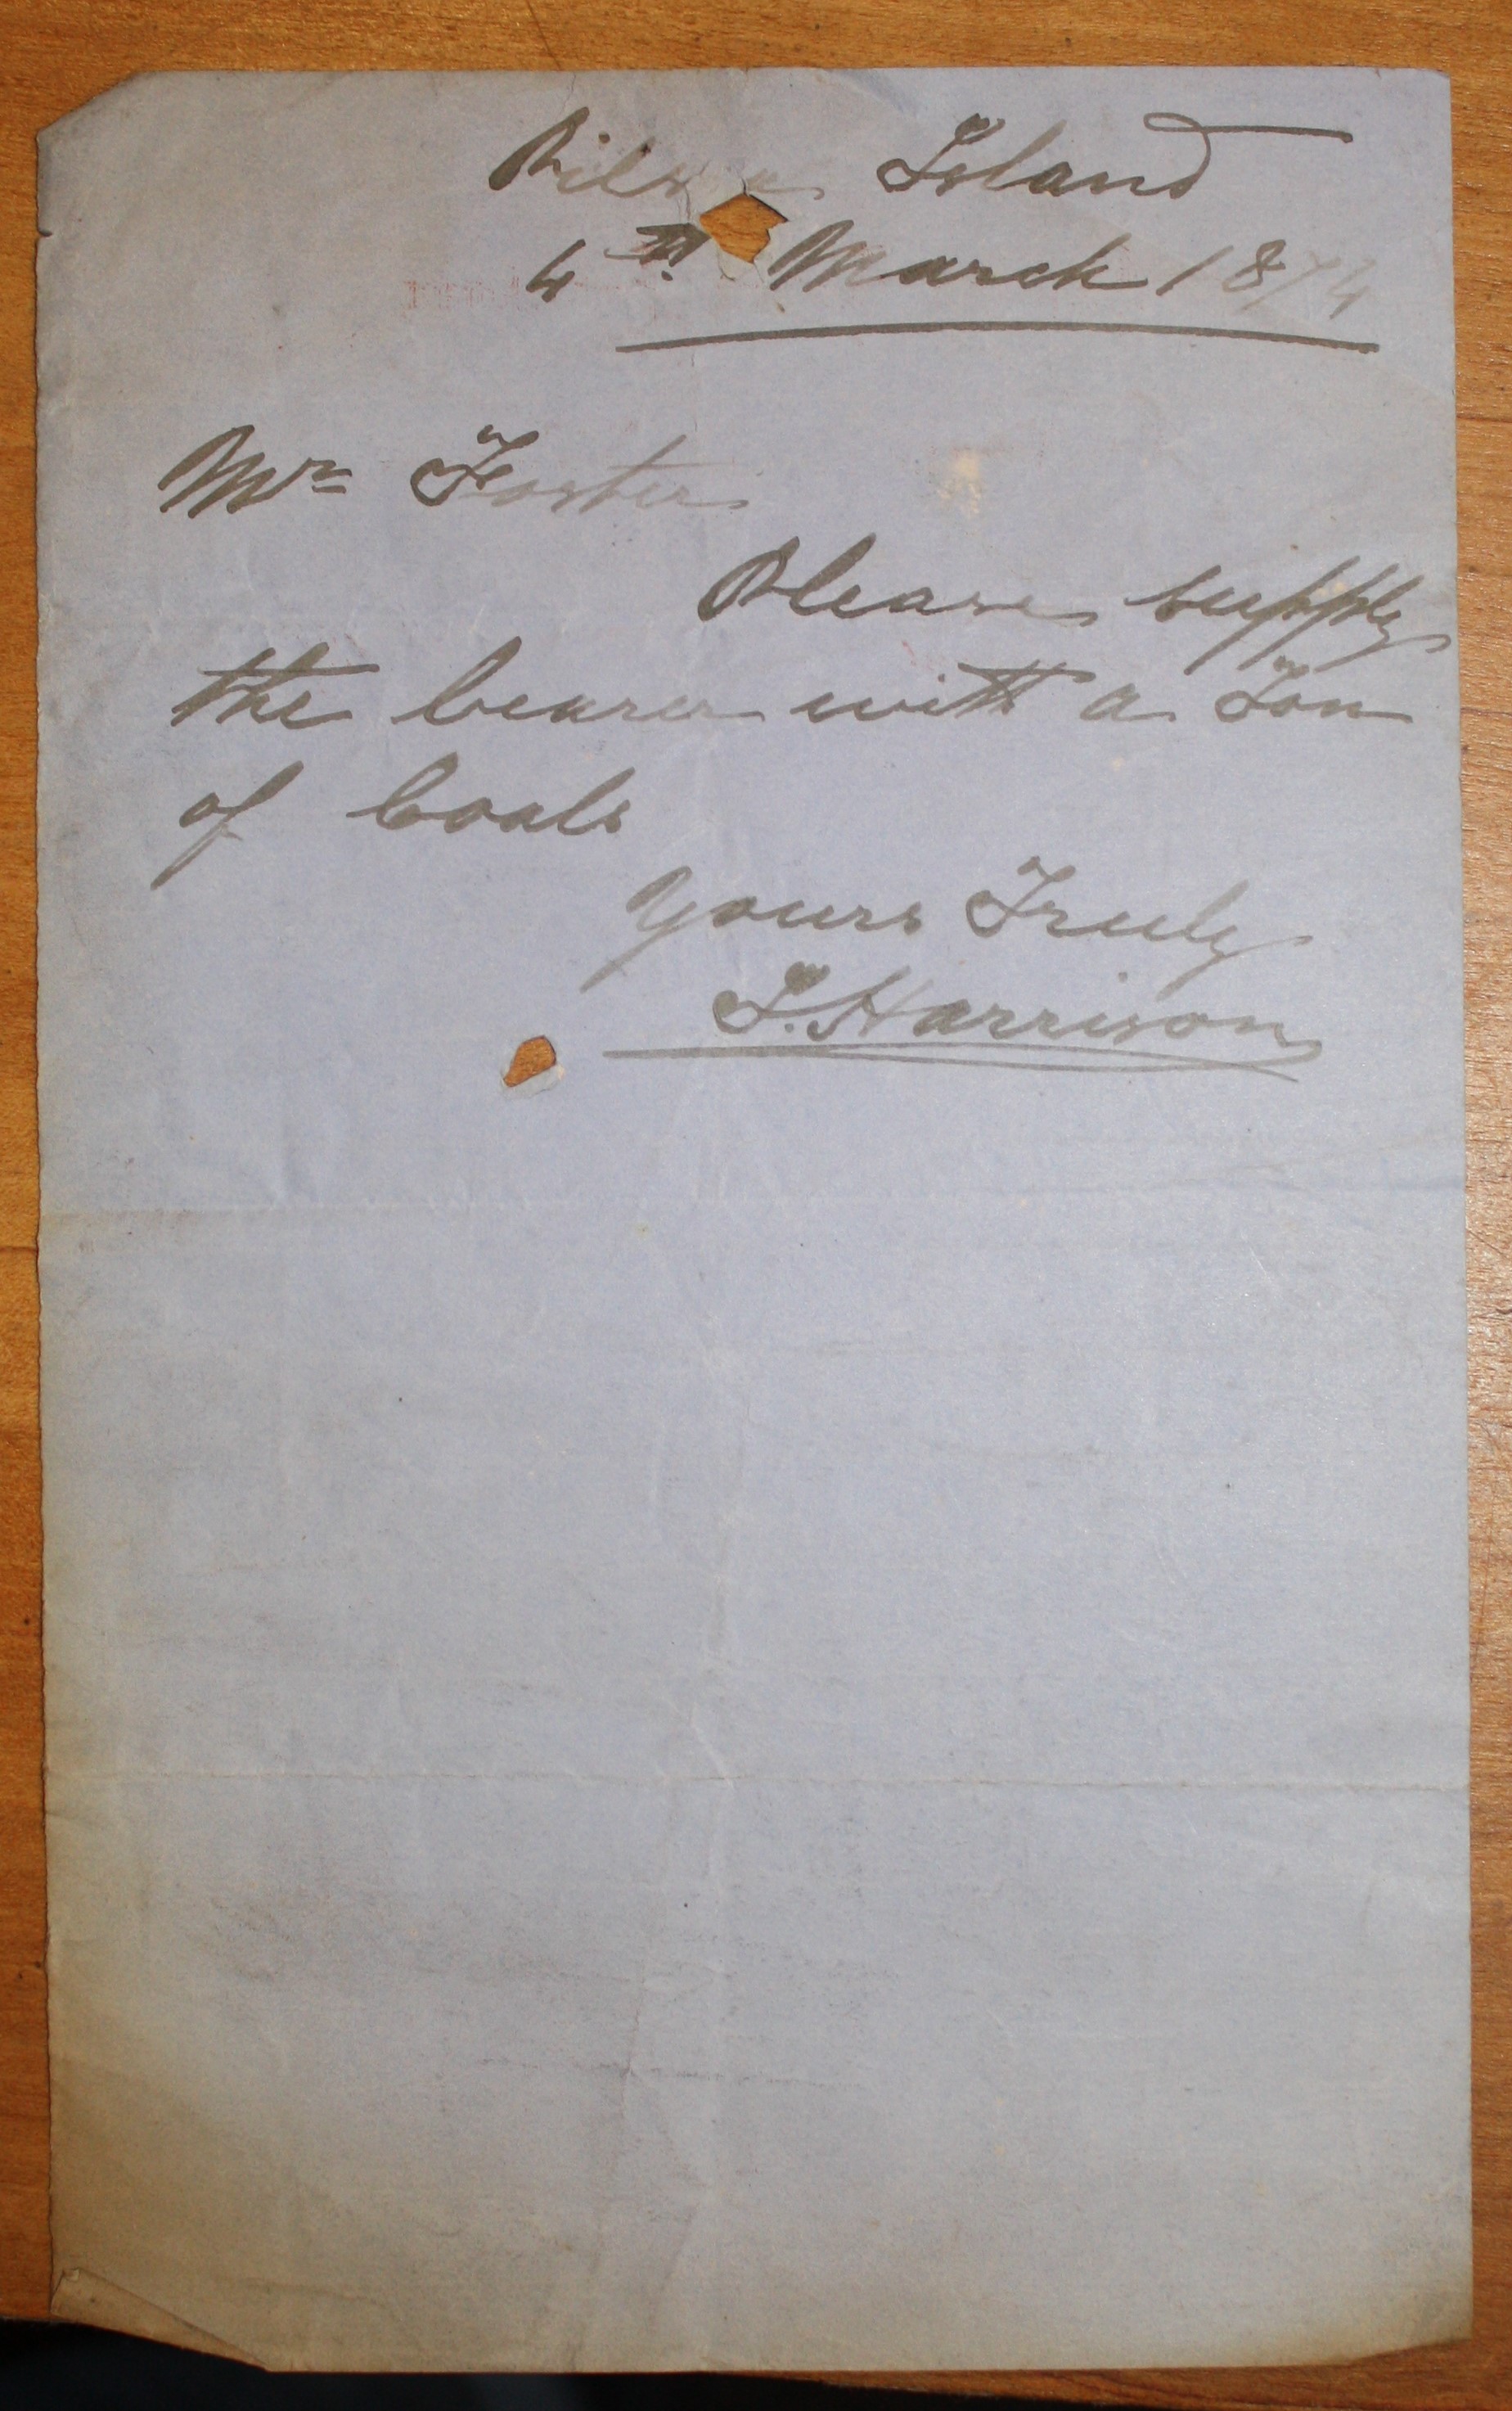 Island
4th March 1874
Mr Foster
Please supply
the bearer with a Ton
of Coals
Yours Truly
I. Harrison